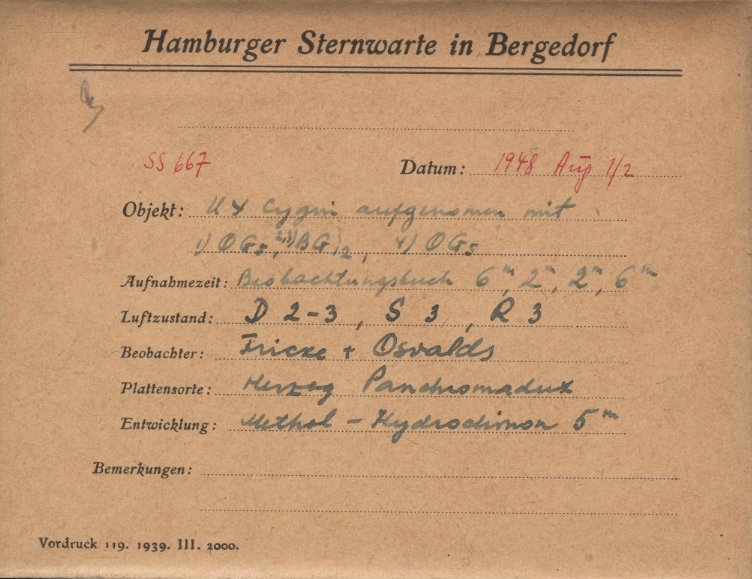 Hamburger Sternwarte in Bergedorf
SS 667 Datum: 1948 Aug 1/2
Objekt: Cygni aufgenomen mit
1) OG5, 2,3) BG12, 4) OG5
Aufnahmezeit: Beobachtungsbuch 6m, 2m, 2m, 6m
Luftzustand: D 2-3, S 3, R 3
Beobachter: Fricke + Osvalds
Plattensorte: Herzog Panchromadux
Entwicklung: Methol - Hydrochinon 5m
Bemerkungen:
Vordruck 119. 1939. III. 2000.